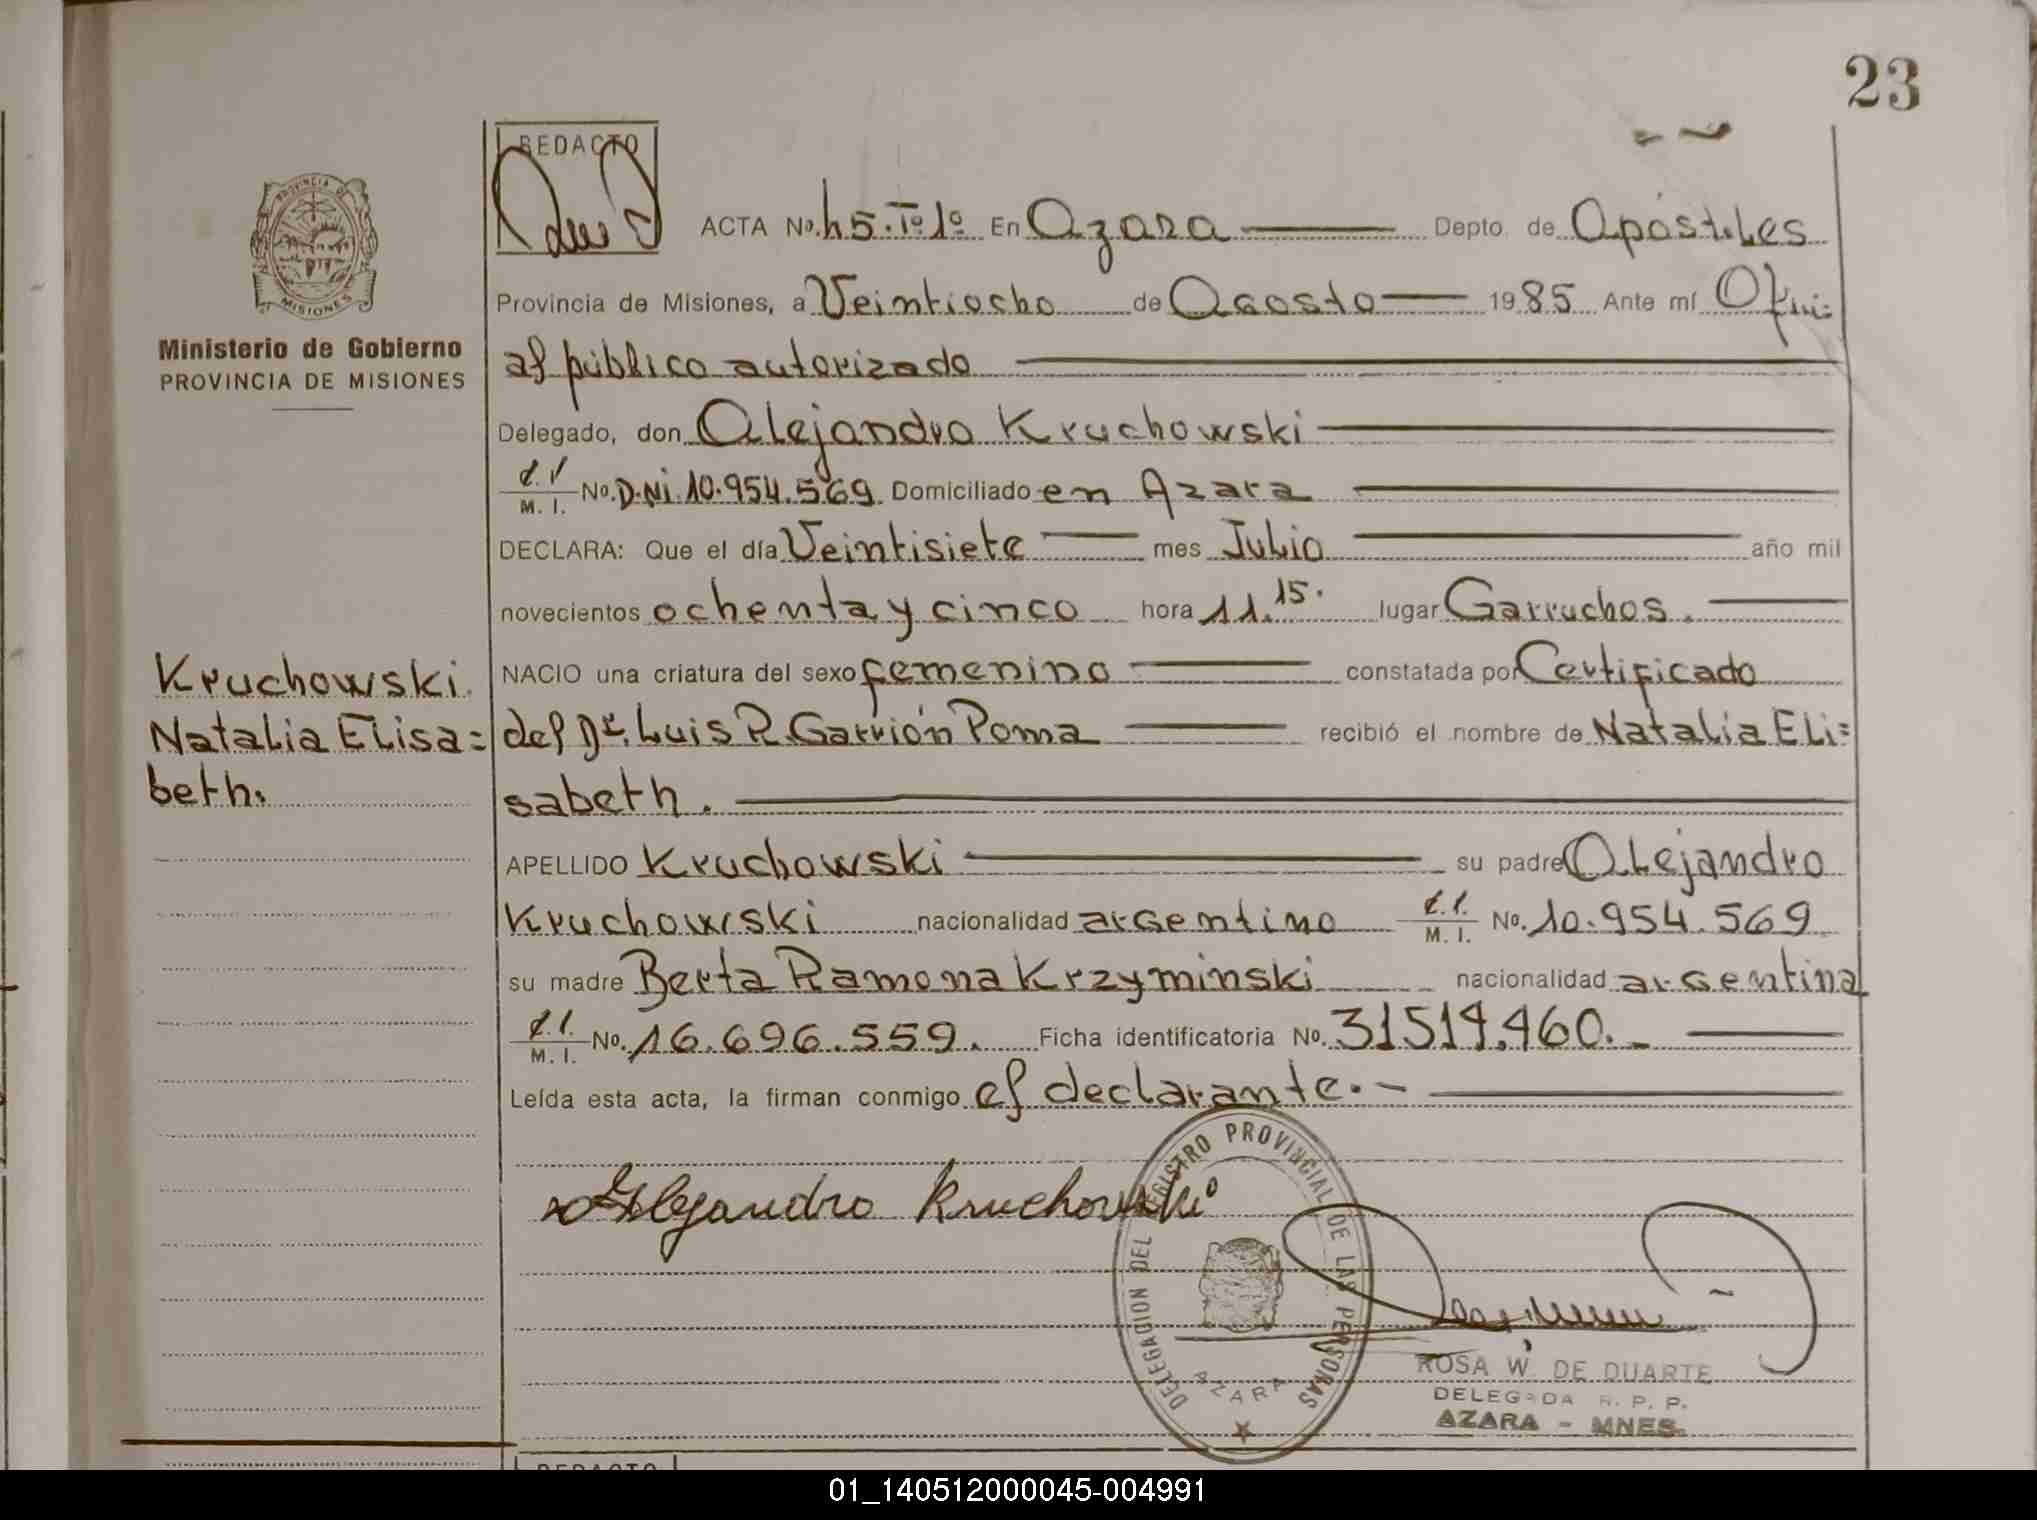 23
REDACTO
PROVINCIA DE
MISIONES
Ministerio de Gobierno
PROVINCIA DE MISIONES
ACTA No. 45. Tº 1º En Azara Depto. de Apóstoles
Provincia de Misiones, a Veintiocho de Agosto 1985 Ante mí Ofici=
al público autorizado
Delegado, don Alejandro Kruchowski
M. I. No. D.Ni. 10.954.569 Domiciliado en Azara
DECLARA: Que el día Veintisiete mes Julio año mil
novecientos ochenta y cinco hora 11.15. lugar Garruchos.
NACIO una criatura del sexo femenino constatada por Certificado
del Dr. Luis R. Garrión Poma recibió el nombre de Natalia Eli=
sabeth.
Kruchowski
Natalia Elisa=
beth.
APELLIDO Kruchowski su padre Alejandro
Kruchowski nacionalidad argentino C.I. M. I. No. 10.954.569
su madre Berta Ramona Krzyminski nacionalidad argentina
C.I. M. I. No. 16.696.559. Ficha identificatoria No. 31519.460.
Leída esta acta, la firman conmigo el declarante.-
Alejandro Kruchowski
DELEGACION DEL REGISTRO PROVINCIAL DE LAS PERSONAS
AZARA
ROSA W. DE DUARTE
DELEGADA R. P. P.
AZARA - MNES.
REDACTO
01_140512000045-004991